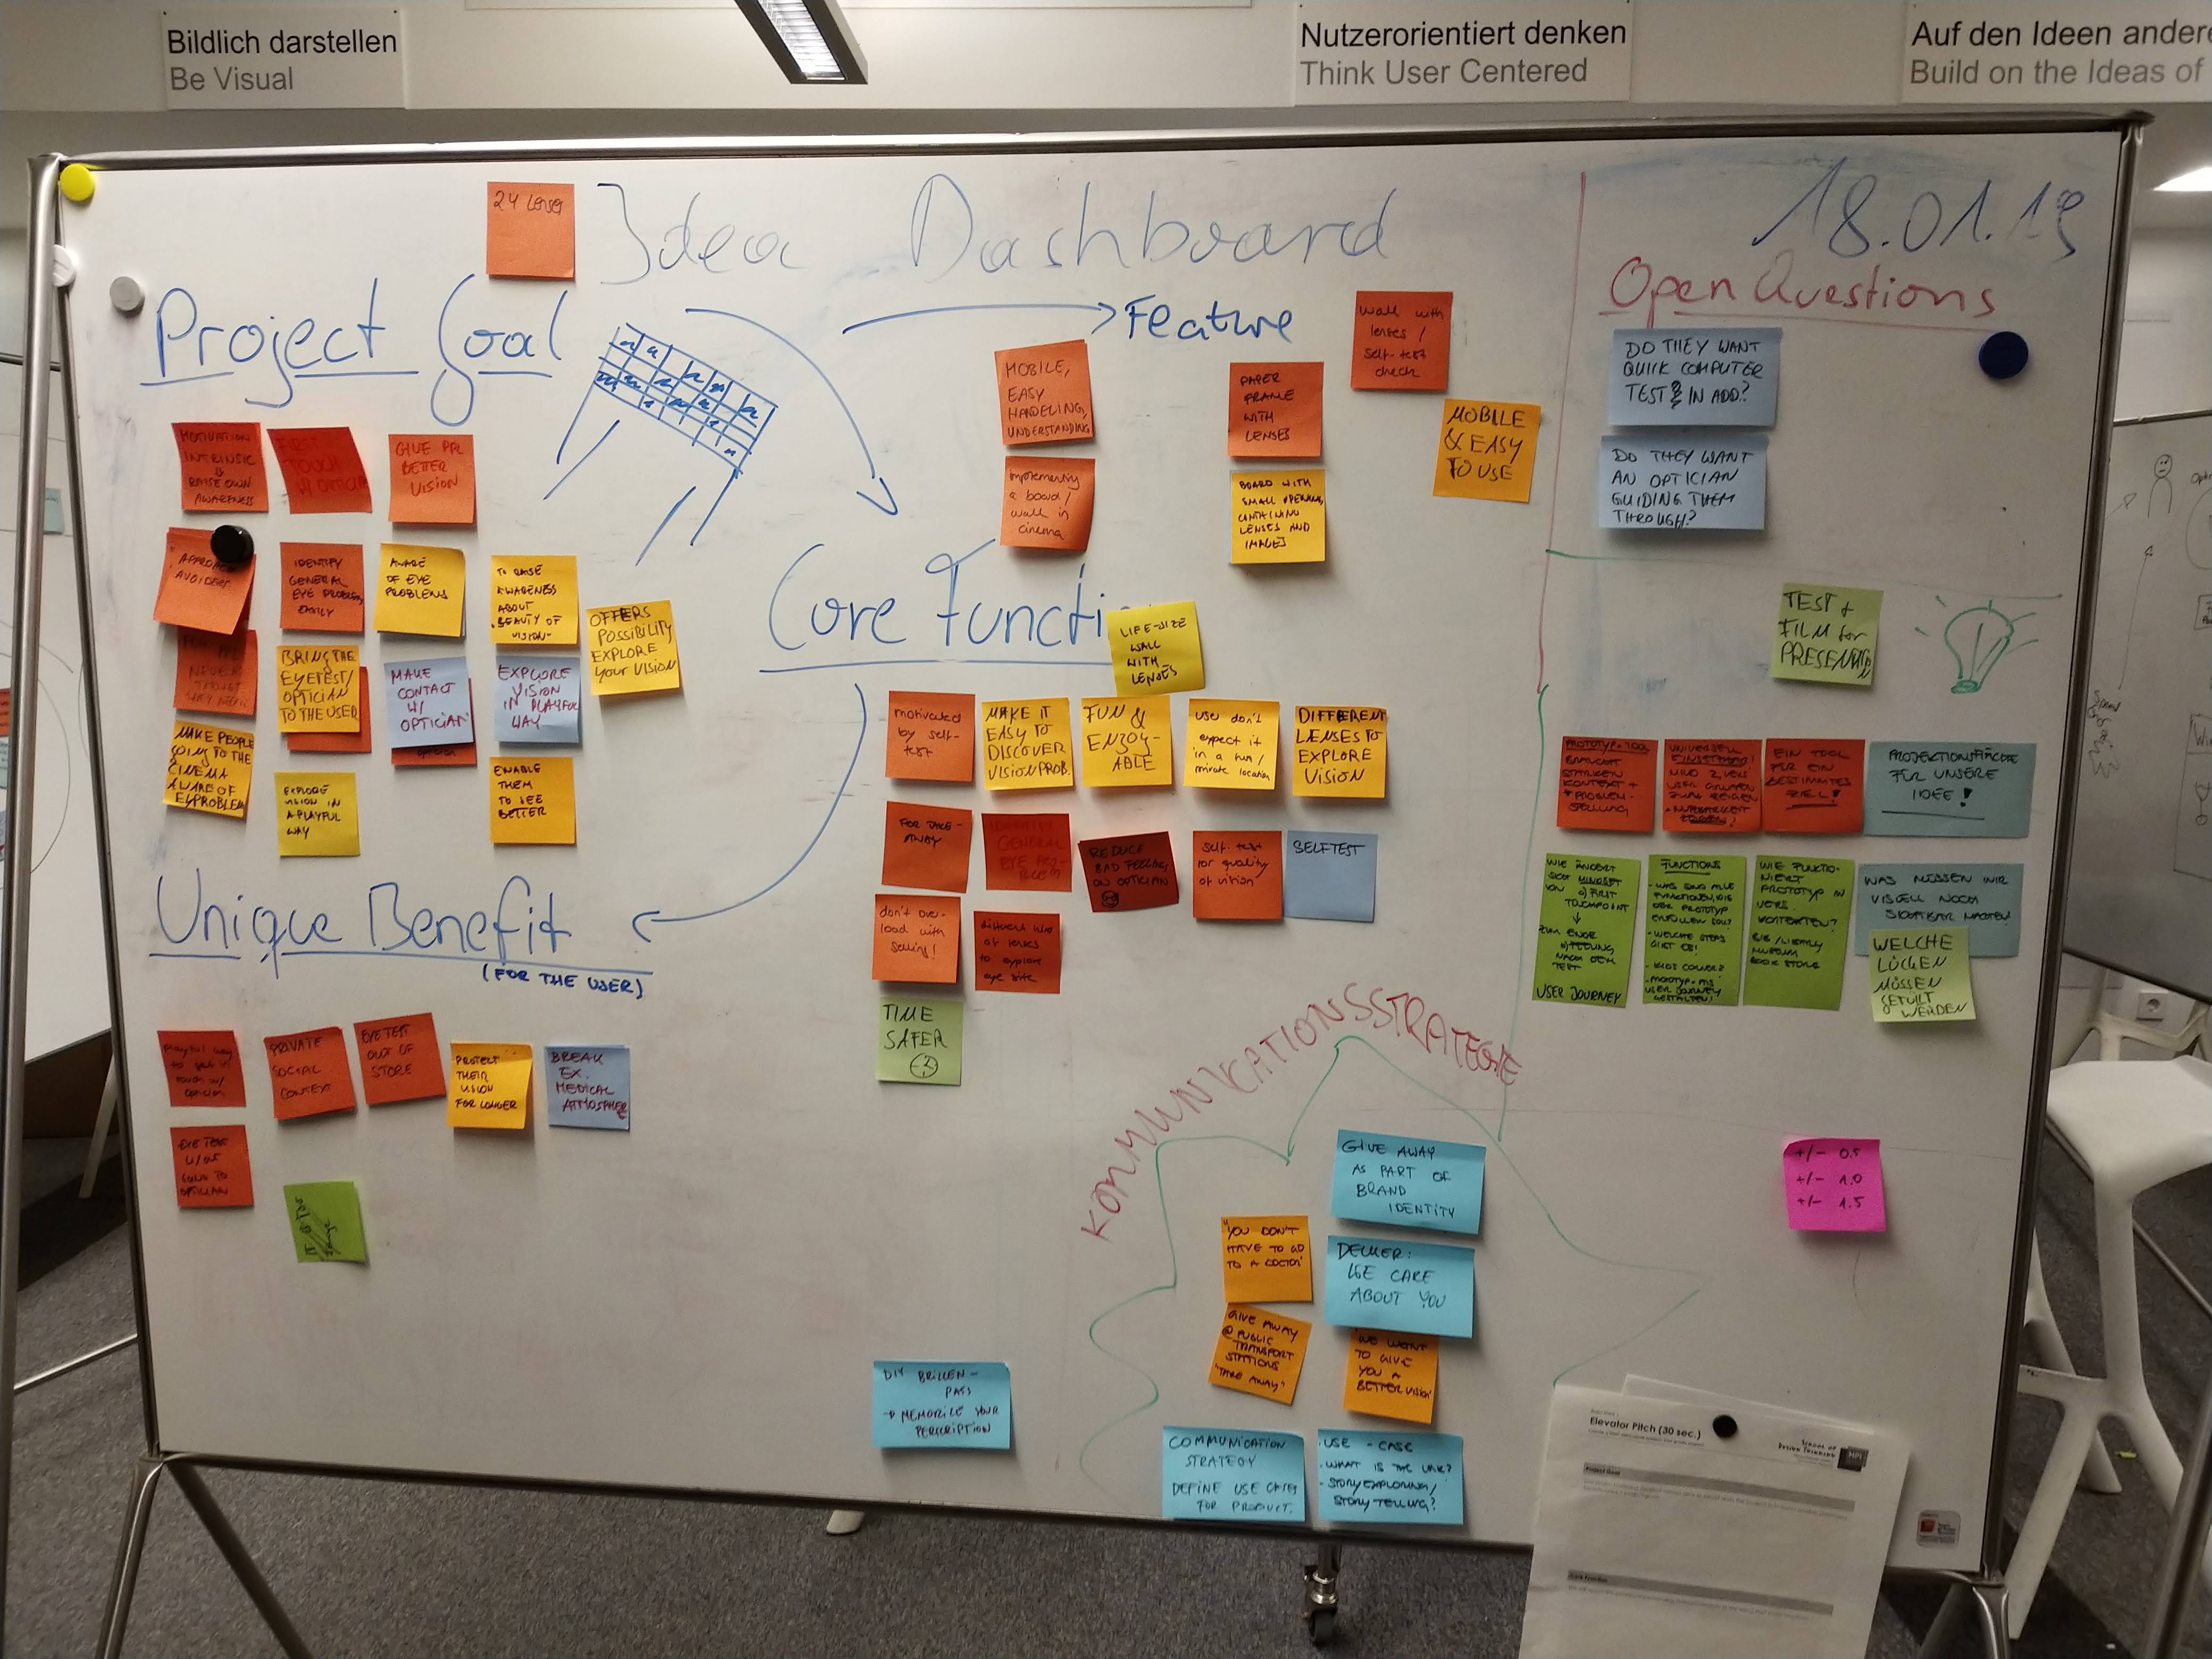 Bildlich darstellen
Be Visual
Nutzerorientiert denken
Think User Centered
Auf den Ideen andere
Build on the Ideas of
Idea Dashboard
18.01.19
Project Goal
MOTIVATION
INTRINSIC
RAISE OWN
AWARENESS
FIRST
TOUCH
W/ OPTICIA
GIVE PPL
BETTER
VISION
APPROACH
AVOIDERS
IDENTIFY
GENERAL
EYE PROBLEMS
EASILY
AWARE
OF EYE
PROBLEMS
TO RAISE
AWARENESS
ABOUT
"BEAUTY OF
VISION"
OFFERS
POSSIBILITY
EXPLORE
YOUR VISION
NEVER
THOUGHT
BRING THE
EYETEST/
OPTICIAN
TO THE USER
MAKE
CONTACT
W/
OPTICIAN
EXPLORE
VISION
IN PLAYFUL
WAY
MAKE PEOPLE
GOING TO THE
CINEMA
AWARE OF
EYPROBLEM
EXPLORE
VISION IN
A PLAYFUL
WAY
ENABLE
THEM
TO SEE
BETTER
Feature
MOBILE,
EASY
HANDELING,
UNDERSTANDING
PAPER
FRAME
WITH
LENSES
wall with
lenses /
self-test
check
MOBILE
& EASY
TO USE
implementing
a board /
wall in
cinema
BOARD WITH
SMALL OPENING,
CONTAINING
LENSES AND
IMAGES
Core Functi
LIFE-SIZE
WALL
WITH
LENSES
motivated
by self-
test
MAKE IT
EASY TO
DISCOVER
VISIONPROB.
FUN &
ENJOY-
ABLE
user don't
expect it
in a fun /
private location
DIFFERENT
LENSES TO
EXPLORE
VISION
FOR TAKE-
AWAY
IDENTIFY
GENERAL
EYE PRO-
BLEM
REDUCE
BAD FEELING
ON OPTICIAN
self-test
for quality
of vision
SELFTEST
don't over-
load with
selling!
different
of lenses
to explore
eye site
TIME
SAFER
Unique Benefit
(FOR THE USER)
Playful way
to get in
touch w/
optician
PRIVATE
SOCIAL
CONTEXT
EYETEST
OUT OF
STORE
PROTECT
THEIR
VISION
FOR LONGER
BREAK
EX.
MEDICAL
ATMOSPHERE
EYE TEST
W/OUT
GOING TO
OPTICIAN
Open Questions
DO THEY WANT
QUICK COMPUTER
TEST IN ADD?
DO THEY WANT
AN OPTICIAN
GUIDING THEM
THROUGH?
TEST +
FILM for
PRESENTATION
PROTOTYP = TOOL
BRAUCHT
STARKEN
KONTEXT +
PROBLEM-
STELLUNG
UNIVERSELL
EINSETZBAR!
EIN TOOL
FÜR EIN
BESTIMMTES
ZIEL!
PROJEKTIONSFLÄCHE
FÜR UNSERE
IDEE!
WIE ÄNDERT
SICH MINDSET
VON FIRST
TOUCHPOINT
ZUM ENDE
NACH DEM
TEST
USER JOURNEY
FUNCTIONS
- WAS SIND ALLE
FUNKTIONEN, DIE
DER PROTOTYP
ERFÜLLEN SOLL?
- WELCHE STEPS
GIBT ES?
- KIDS CORNER?
USER JOURNEY
GESTALTEN!
WIE FUNKTIO-
NIERT
PROTOTYP IN
VERS.
KONTEXTEN?
MUSEUM
BOOK STORE
WAS MÜSSEN WIR
VISUELL NOCH
SICHTBAR MACHEN?
WELCHE
LÜCKEN
MÜSSEN
GEFÜLLT
WERDEN
KOMMUNICATIONSSTRATEGIE
GIVE AWAY
AS PART OF
BRAND
IDENTITY
+/- 0.5
+/- 1.0
+/- 1.5
"YOU DON'T
HAVE TO GO
TO A DOCTOR"
WE CARE
ABOUT YOU
GIVE AWAY
@ PUBLIC
TRANSPORT
STATIONS
"TAKE AWAY"
WE WANT
TO GIVE
YOU A
BETTER VISION
DIY BRILLEN-
PASS
→ MEMORIZE YOUR
PERSCRIPTION
COMMUNICATION
STRATEGY
DEFINE USE CASES
FOR PRODUCT.
- USE-CASE
- WHAT IS THE
- STORYEXPLORING /
STORYTELLING?
Elevator Pitch (30 sec.)
SCHOOL OF
DESIGN THINKING
HPI
Project Goal
Core Function